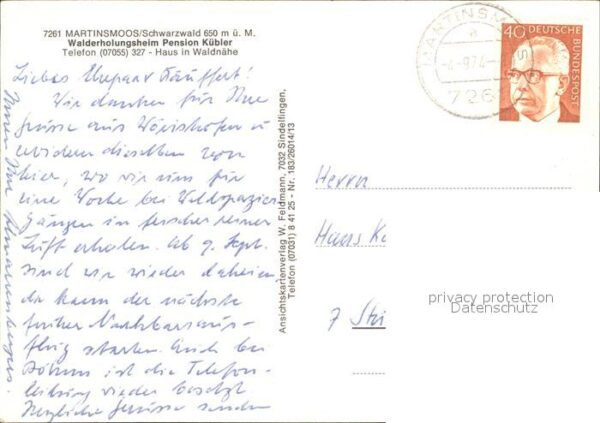 7261 MARTINSMOOS/Schwarzwald 650 m ü. M.
Walderholungsheim Pension Kübler
Telefon (07055) 327 - Haus in Waldnähe
Liebes Ehepaar Täuffert!
Wir danken für Ihre
Grüsse aus Wörishofen u.
erwidern dieselben von
hier, wo wir uns für
eine Woche bei Waldspazier
gängen in frischer reiner
Luft erholen. Ab 9. Sept.
sind wir wieder daheim
da kann der nächste
Nachbaraus-
flug starten. Auch bei
ist die Telefon-
leitung wieder besetzt
Herzliche Grüsse senden
Ihnen Ihre
Ansichtskartenverlag W. Feldmann, 7032 Sindelfingen,
Telefon (07031) 8 41 25 - Nr. 183/26014/13
MARTINSMOOS
a
-4.-9.74-
726
40
DEUTSCHE
BUNDESPOST
Herrn
Hans
7
privacy protection
Datenschutz